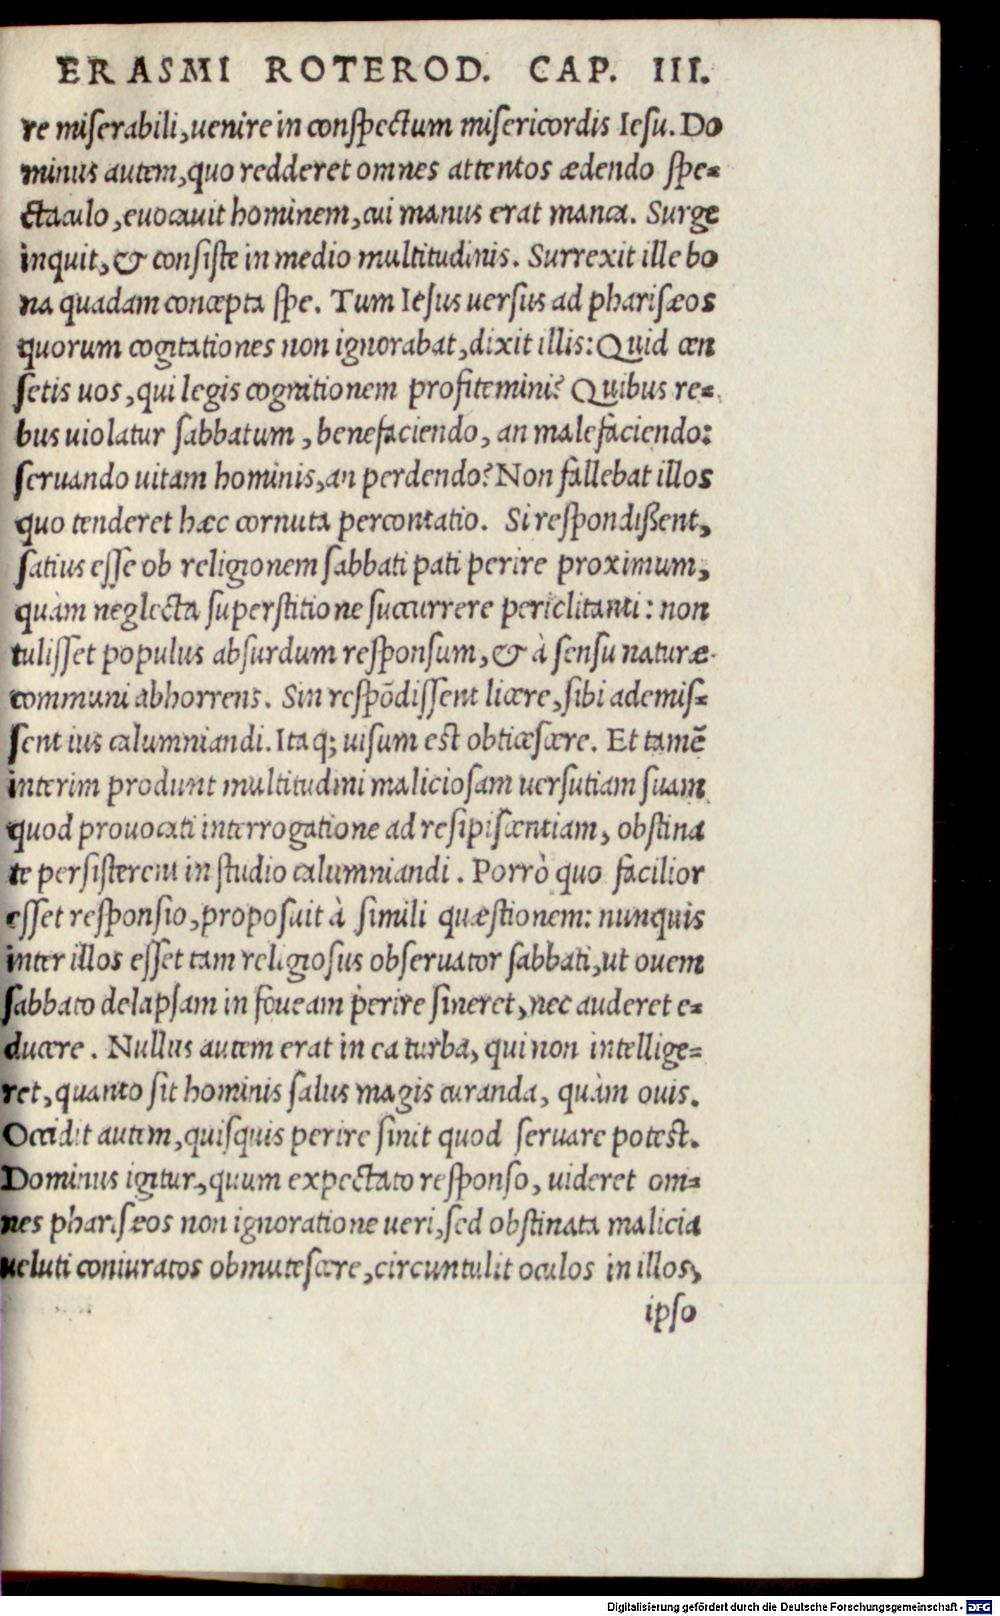 ERASMI ROTEROD. CAP. III.
re miserabili, uenire in conspectum misericordis Iesu. Do
minus autem, quo redderet omnes attentos ædendo spe-
ctaculo, euocauit hominem, cui manus erat manca. Surge
inquit, & consiste in medio multitudinis. Surrexit ille bo
na quadam concepta spe. Tum Iesus uersus ad pharisæos
quorum cogitationes non ignorabat, dixit illis: Quid cen
setis uos, qui legis cognitionem profitemini? Quibus re-
bus uiolatur sabbatum, benefaciendo, an malefaciendo:
seruando uitam hominis, an perdendo? Non fallebat illos
quo tenderet hæc cornuta percontatio. Si respondißent,
satius esse ob religionem sabbati pati perire proximum,
quàm neglecta superstitione succurrere periclitanti: non
tulisset populus absurdum responsum, & à sensu naturæ
communi abhorrens. Sin respõdissent licere, sibi ademis-
sent ius calumniandi. Itaq; uisum est obticescere. Et tamẽ
interim produnt multitudini maliciosam uersutiam suam
quod prouocati interrogatione ad resipiscentiam, obstina
te persisterent in studio calumniandi. Porrò quo facilior
esset responsio, proposuit à simili quæstionem: nunquis
inter illos esset tam religiosus obseruator sabbati, ut ouem
sabbato delapsam in foueam perire sineret, nec auderet e-
ducere. Nullus autem erat in ea turba, qui non intellige-
ret, quanto sit hominis salus magis curanda, quàm ouis.
Occidit autem, quisquis perire sinit quod seruare potest.
Dominus igitur, quum expectato responso, uideret om-
nes pharisæos non ignoratione ueri, sed obstinata malicia
ueluti coniuratos obmutescere, circuntulit oculos in illos,
ipso
Digitalisierung gefördert durch die Deutsche Forschungsgemeinschaft - DFG